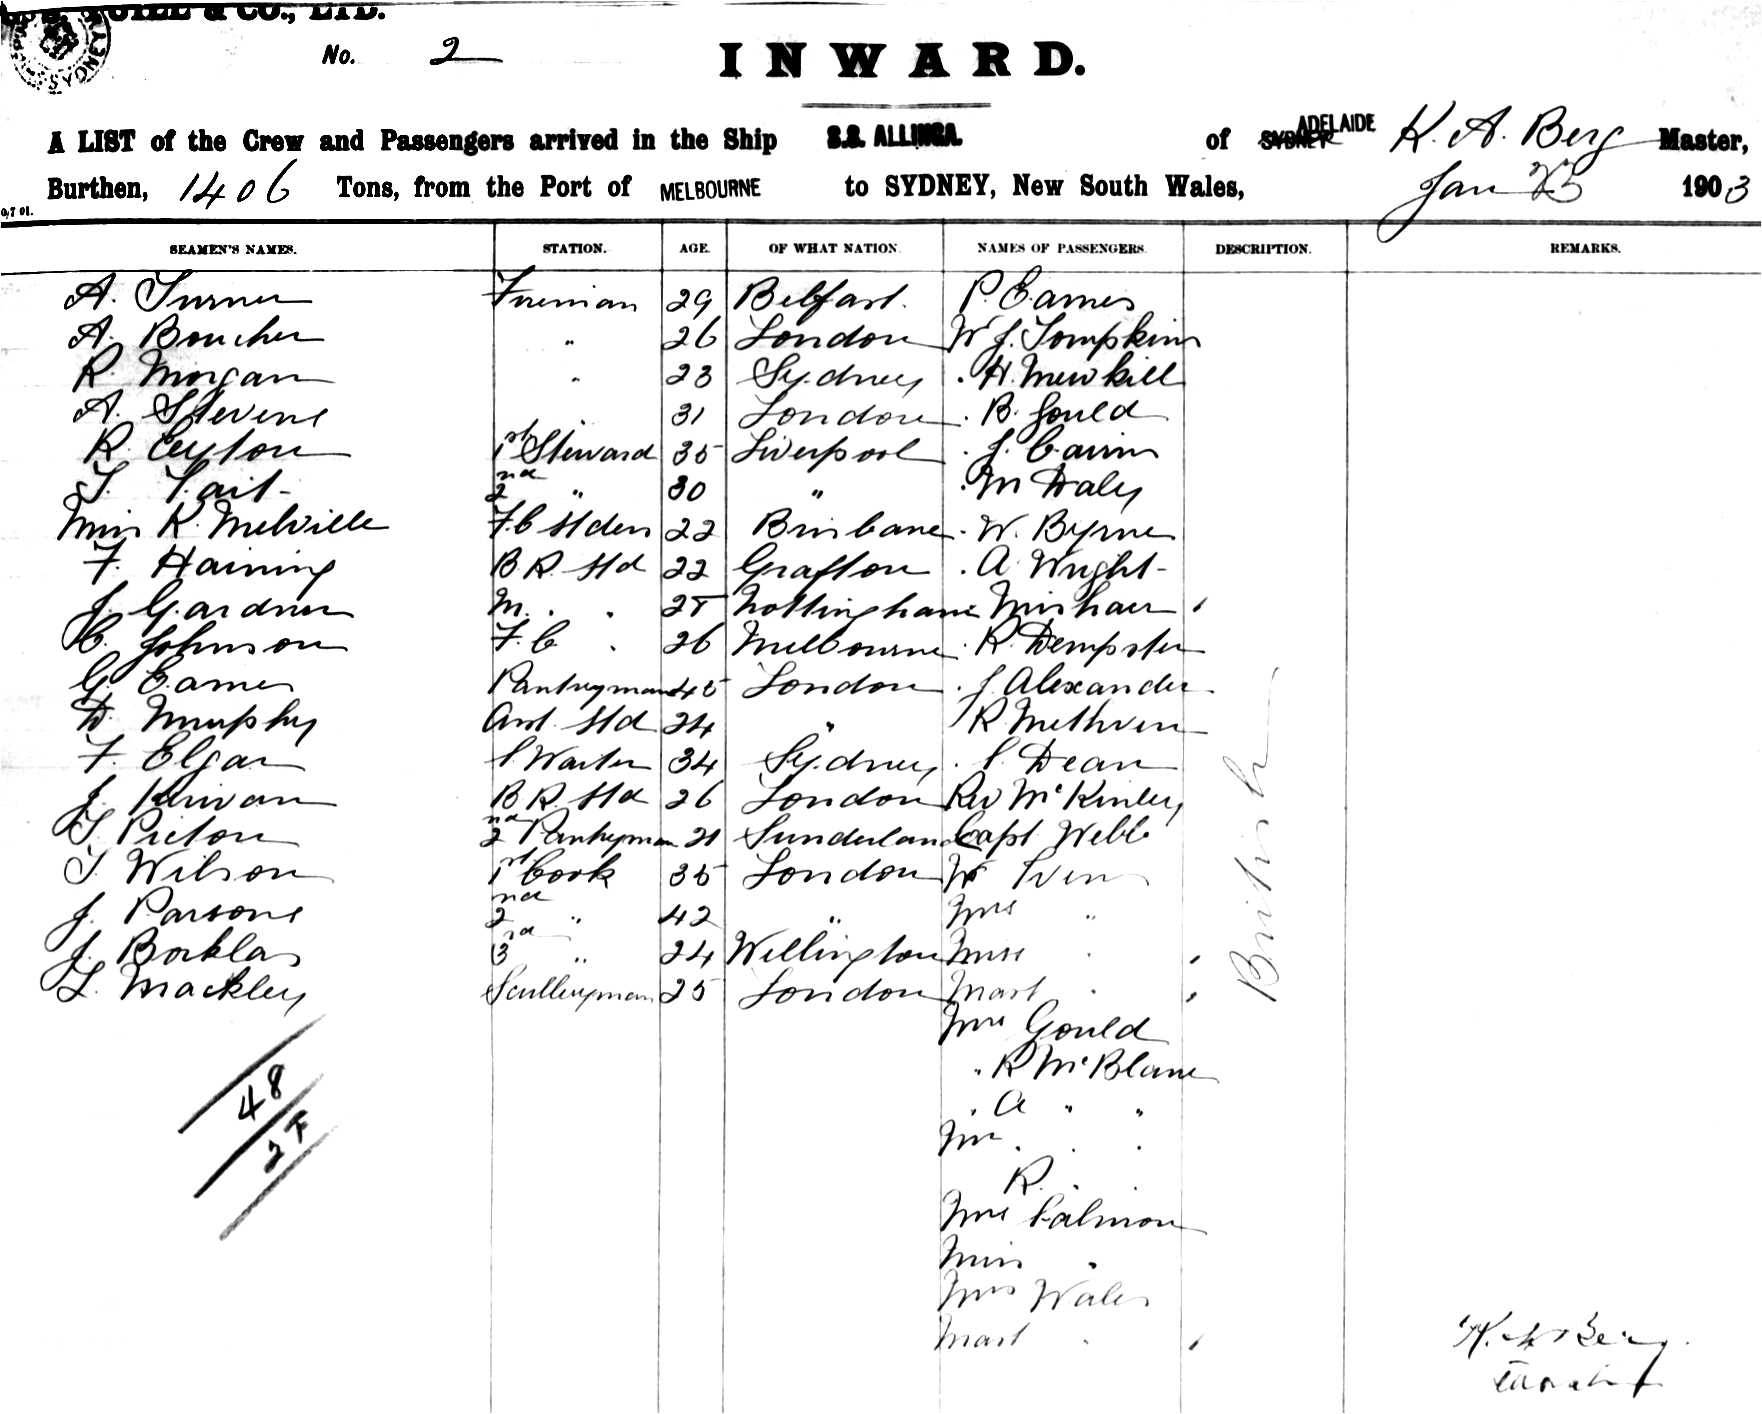 & CO., LTD.
No. 2
INWARD.
A LIST of the Crew and Passengers arrived in the Ship S.S. ALLINGA. of SYDNEY ADELAIDE K. A. Berg Master,
Burthen, 1406 Tons, from the Port of MELBOURNE to SYDNEY, New South Wales, Jan 1903
SEAMEN'S NAMES. STATION. AGE. OF WHAT NATION. NAMES OF PASSENGERS. DESCRIPTION. REMARKS.
A. Turner Fireman 29 Belfast. P. Eames
A. Boucher " 26 London W J. Tompkins
R. Morgan " 23 Sydney . H. Mewkill
A. Stevens 31 London . B. Gould
R. Ceyton 1st Steward 35 Liverpool . J. Cairns
T. Tait 2nd " 30 " . M Daley
Miss K. Melville F.C Stdess 22 Brisbane . W. Byrnes
F. Haining B.R. Std 22 Grafton . A. Wright
J. Gardner M. . . 28 Nottingham Miss
C. Johnson F.C . 26 Melbourne . R. Dempster
G. Eames Pantryman 45 London . J Alexander
D. Murphy Asst. Std 24 " R Methven
F. Elgar S Waiter 34 Sydney . S Dean
J. Kirwan B R. Std 26 London Rev McKinley
T. Picton 2nd Pantryman 21 Sunderland Capt Webb
T. Wilson 1st Cook 35 London W Ivens
J. Parsons 2nd " 42 " Mrs "
J. Borklas 3rd " 24 Wellington Miss "
L. Mackley Sculleryman 25 London Mast "
Mrs Gould
. R McBlane
. A " "
Mrs . . .
R. . .
Mrs Salmon
Miss "
Mrs Wales
Mast "
British
48
2F
K. A Berg